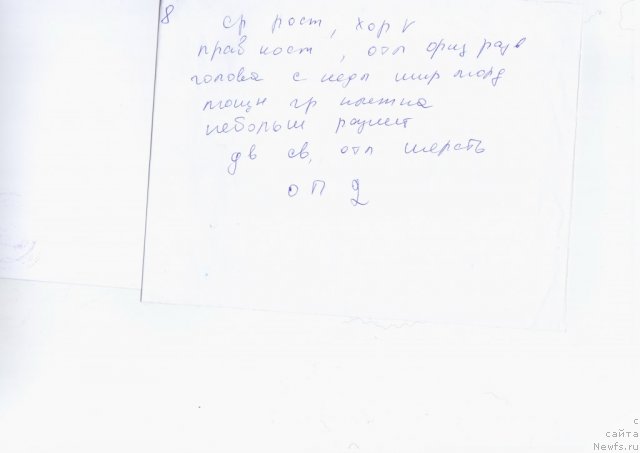 8 ср рост, хор v
прав кост, отл физ разв
голова с недл шир морд
мощн гр клетка
небольш размет
дв св, отл шерсть
ОП 2
с
сайта
Newfs.ru